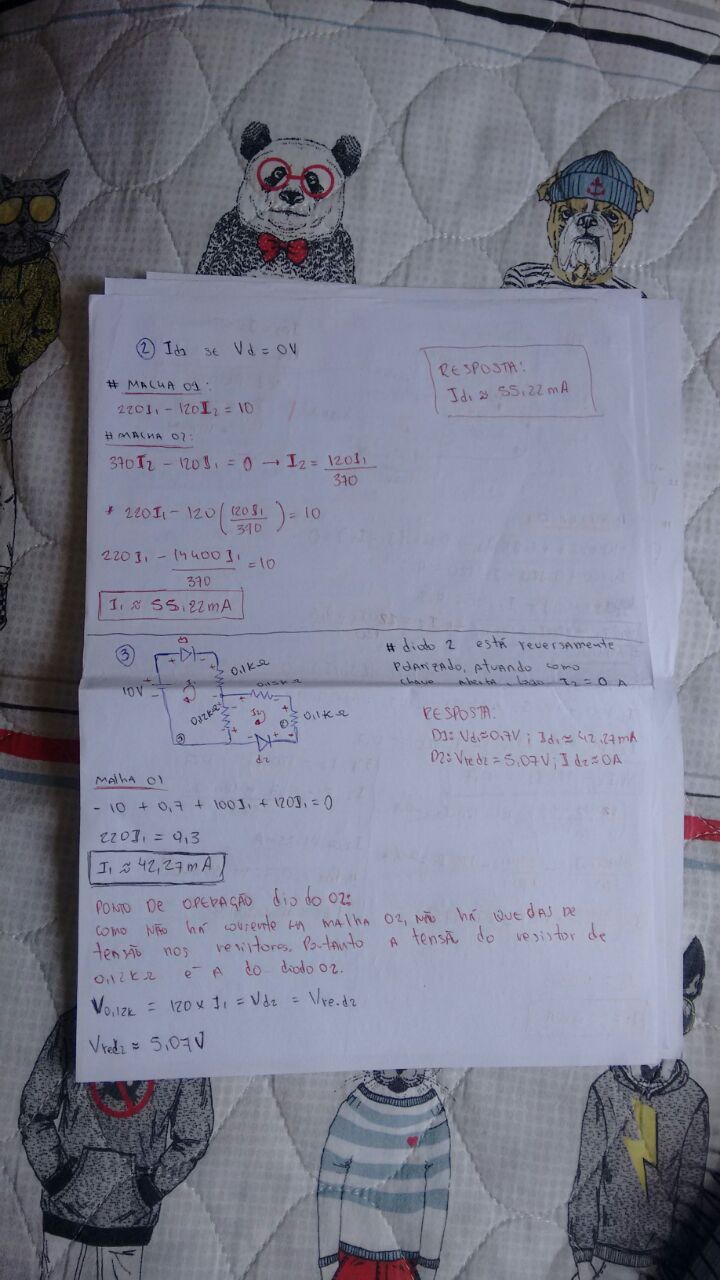 ② Id1 se Vd = 0V
RESPOSTA:
Id1 ≈ 55,22mA
# MALHA 01:
220I1 - 120I2 = 10
# MALHA 02:
370I2 - 120I1 = 0 → I2 = 120I1/370
* 220I1 - 120(120I1/370) = 10
220I1 - 14400I1/370 = 10
I1 ≈ 55,22mA
③
10V
0,1KΩ
0,12KΩ
0,1KΩ
I2
d2
# diodo 2 está reversamente
polarizado, atuando como
chave aberta, logo I2 = 0 A
RESPOSTA:
D1: Vd1=0,7V; Id1 ≈ 42,27mA
D2: Vred2 = 5,07V; Id2 = 0A
Malha 01
- 10 + 0,7 + 100I1 + 120I1 = 0
220I1 = 9,3
I1 ≈ 42,27mA
PONTO DE OPERAÇÃO diodo 02:
COMO NÃO há corrente na malha 02, NÃO há QUEDAS DE
tensão nos resistores. Portanto A tensão do resistor de
0,12KΩ é A do diodo 02.
V0,12K = 120 x I1 = Vd2 = Vre.d2
Vred2 ≈ 5,07V